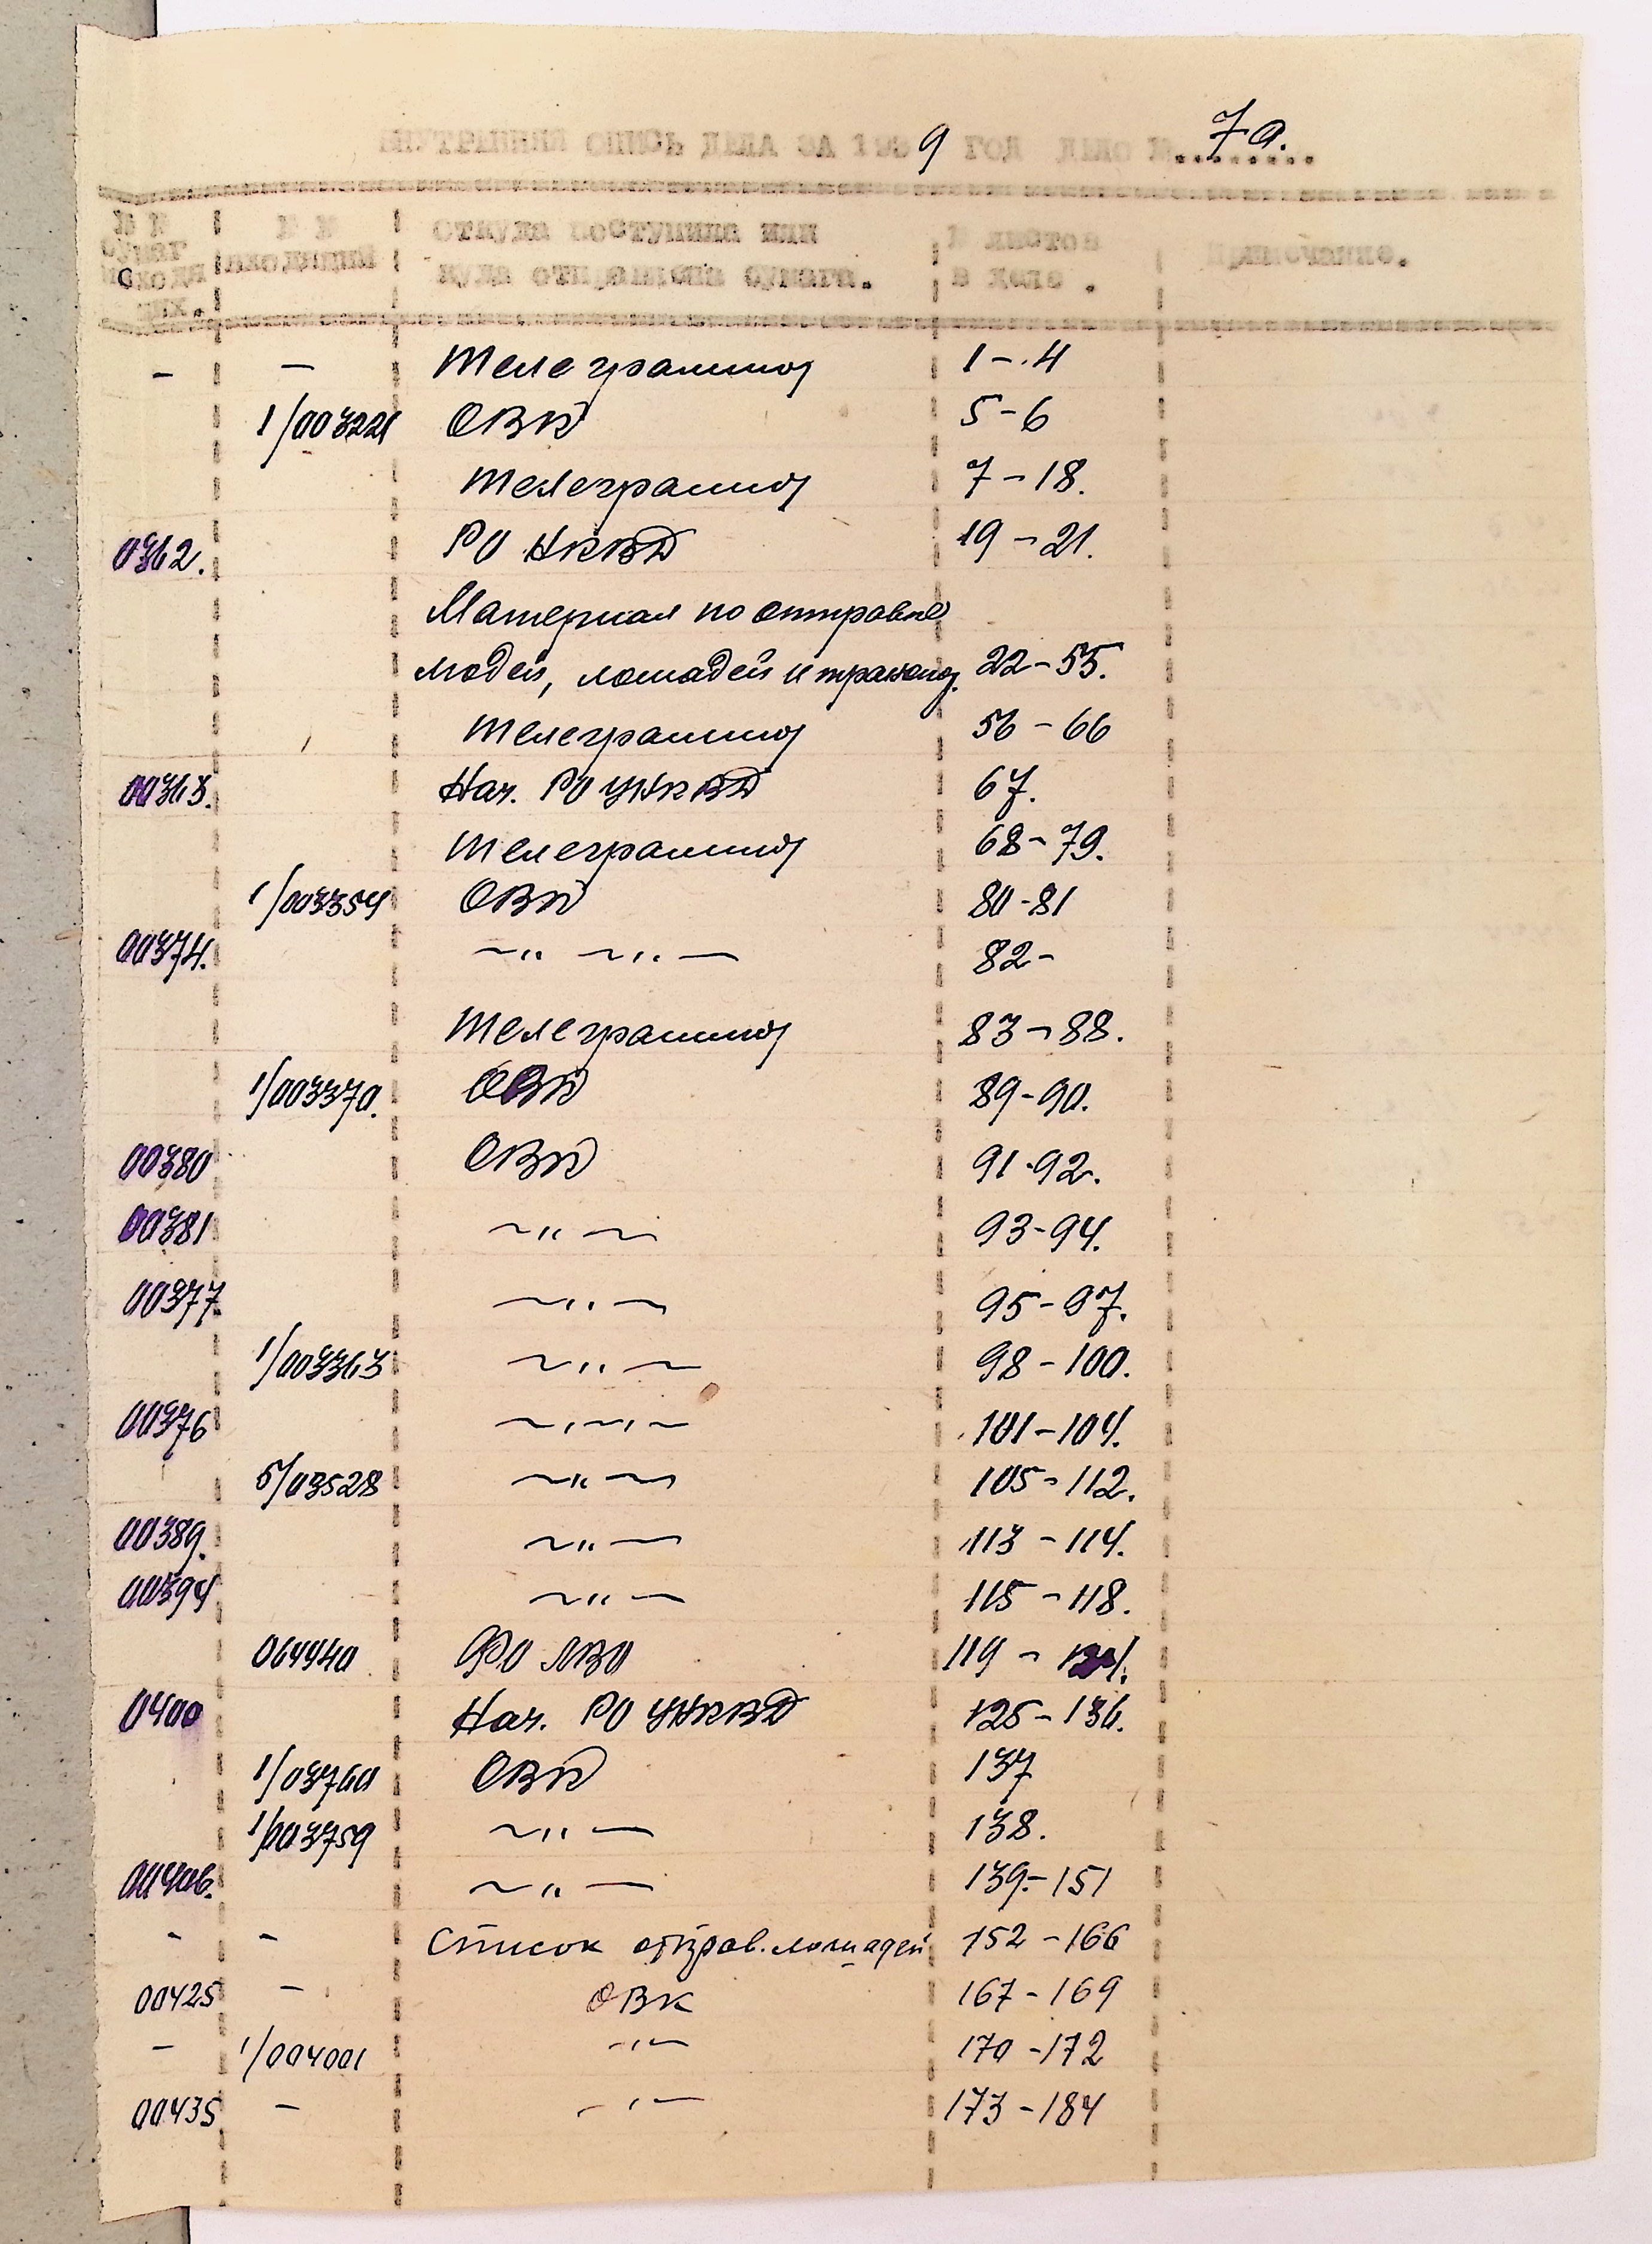 ВНУТРЕННЯЯ ОПИСЬ ДЕЛА ЗА 1939 ГОД ДЕЛО №........ 7а.
№ № бумаг исходя щих. № № входящий Откуда поступила или куда отправлена бумага. № листов в деле . Примечание.
- — Телеграммы 1-4
1/003221 ОВК 5-6
Телеграммы 7-18.
0362. РО НКВД 19-21.
Материал по отправке
людей, лошадей и транспор. 22-55.
Телеграммы 56-66
00363. Нач. РО УНКВД 67.
Телеграммы 68-79.
1/003354 ОВК 80-81
00374. —"—"— 82-
Телеграммы 83-88.
1/003370. ОВК 89-90.
00380 ОВК 91-92.
00381 —"— 93-94.
00377. —"— 95-97.
1/003363 —"— 98-100.
00376 —"—"— 101-104.
5/03528 —"— 105-112.
00389. —"— 113-114.
00394 —"— 115-118.
064940 ФО ЛВО 119-124.
0400 Нач. РО УНКВД 125-136.
1/03760 ОВК 137
1/003759 —"— 138.
00406. —"— 139-151
- - Список отправ. лошадей 152-166
00425 — ОВК 167-169
— 1/004001 —"— 170-172
00435 — —"— 173-184